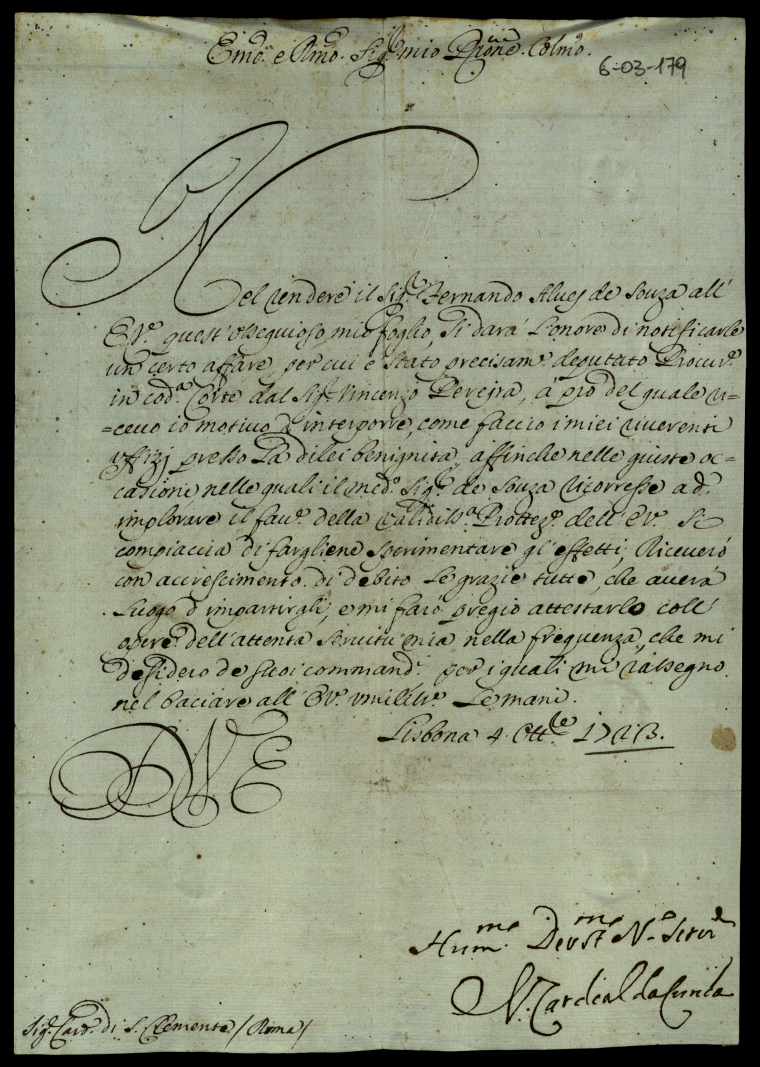 Emo. e Rmo. Sig.r mio Prone. Colmo.
6-03-179
Nel rendere il Sig.r Fernando Alvej de Souza all'
E.V.a quest'ossequioso mio foglio, Si darà l'onore di notificarle
un certo affare, per cui è stato precisam.e deputato Procur.e
in cod.a Corte dal Sig.r Vincenzo Pereira, à prò del quale ri=
=cevo io motivo d'interporre, come faccio i miei riverenti
Uffizj presso La di lei benignità, affinche nelle giuste oc=
casioni nelle quali il med.o Sig.r de Souza ricorresse ad.
implorare il fav.e della Validiss.a Protez.e dell'E.V.a Si
compiaccia di fargliene sperimentare gl'effetti, Riceverò
con accrescimento di debito Le grazie tutte, che averà
Luogo d'impartirgli, e mi farò pregio attestarlo coll'
opere dell'attenta servitù mia nella frequenza, che mi
desidero de suoi commandi. per i quali mi rassegno
nel baciare all'E.V.a umiliss.e Le mani.
Lisbona 4. Ott.bre 1723.
D V E
Hum.mo Devot.mo N.o Servi.r
N. Cardeal da Cunha
Sig.r Card. di S. Clemente /Roma/